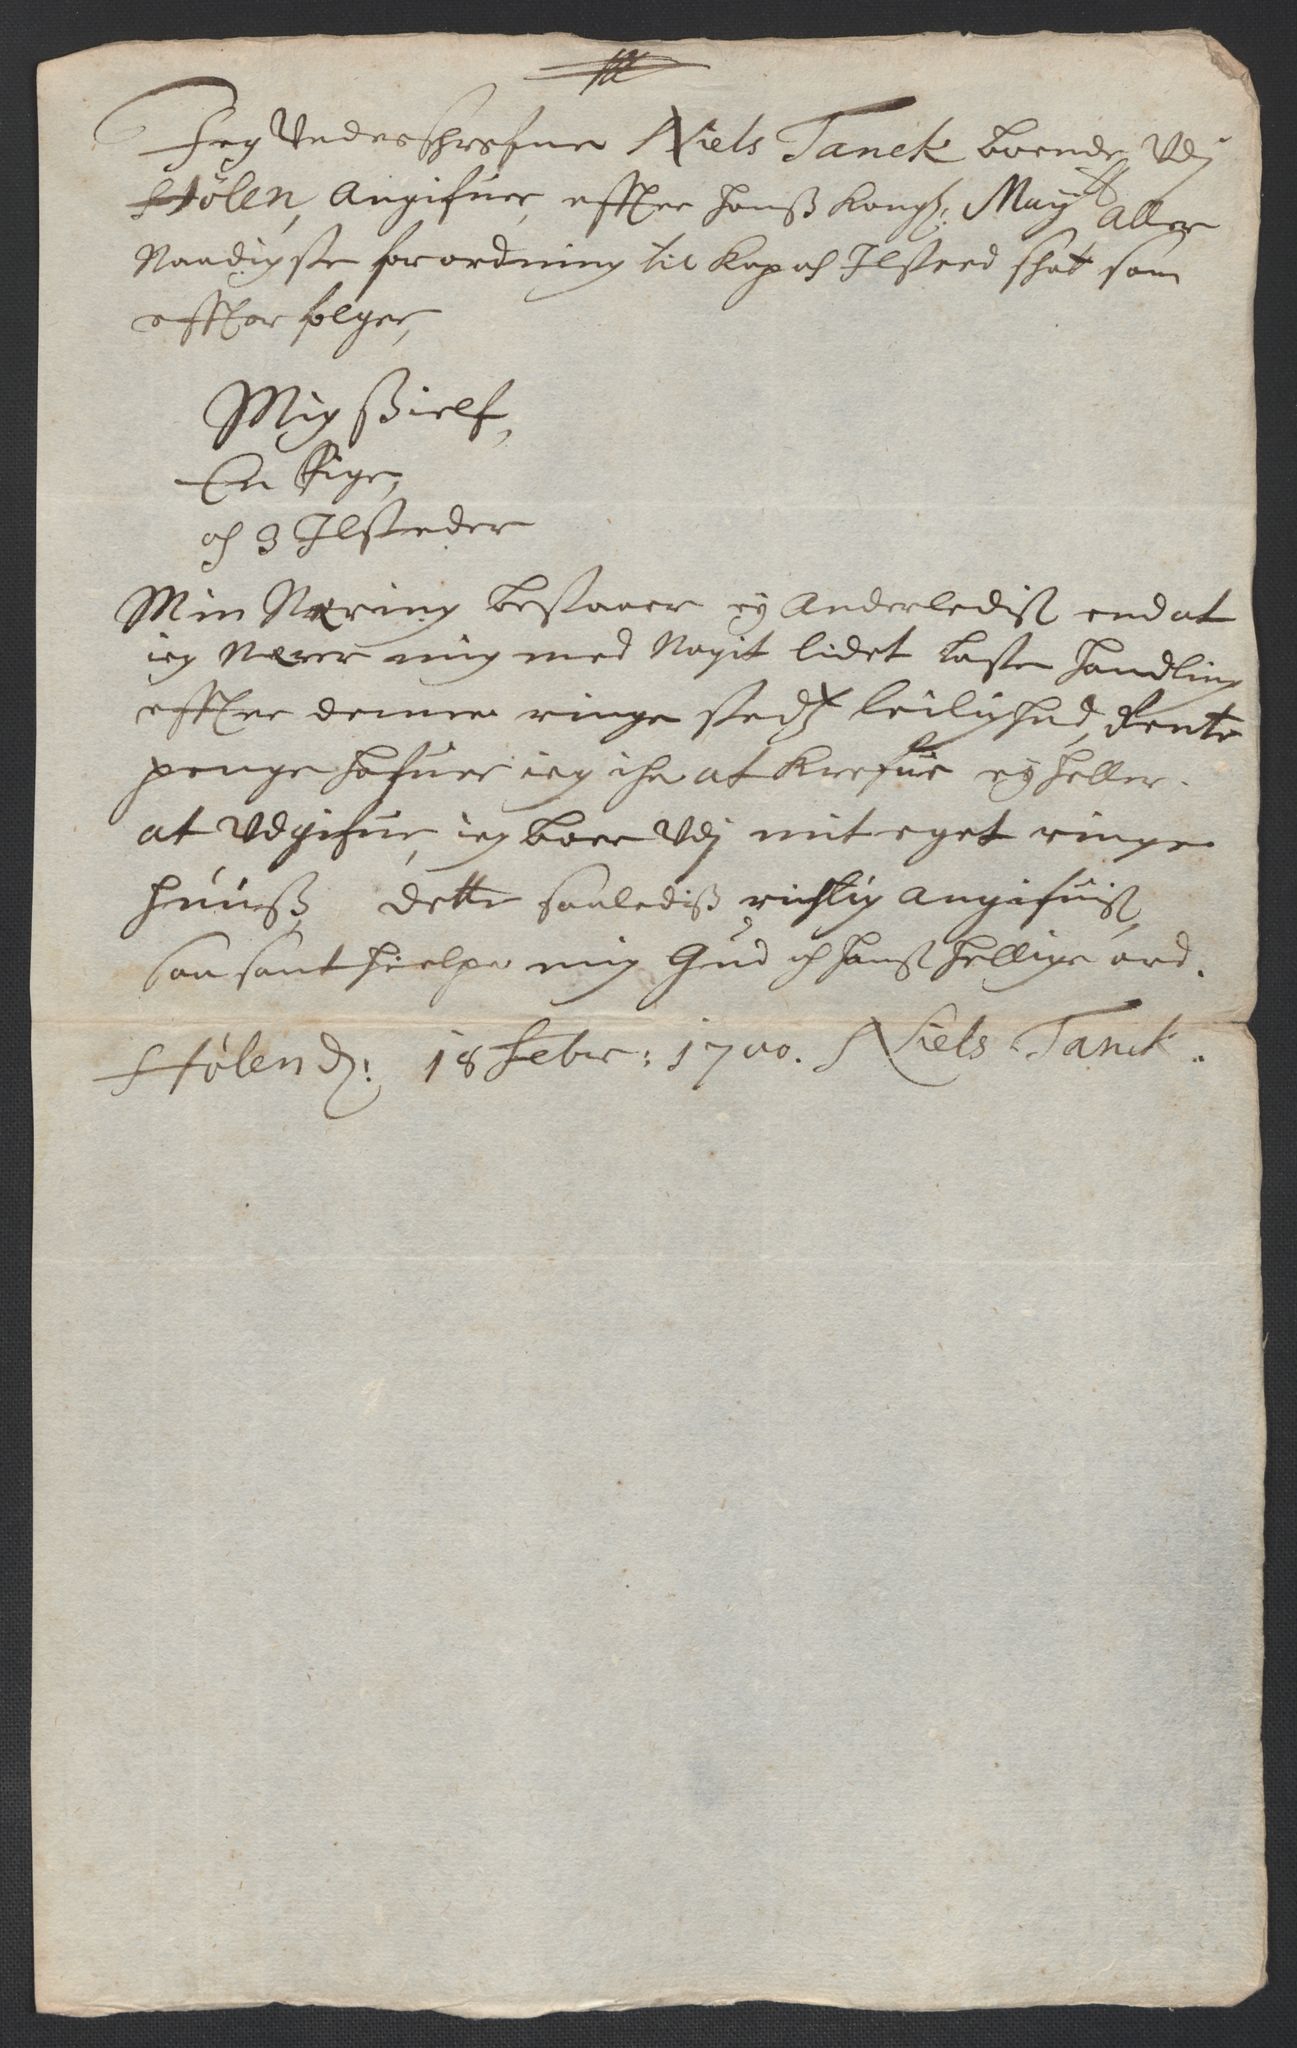 Jeg Underschrefne Niels Tanck boende Udj
Hölen, Angifuer, effter hanß Kongl: Mayts Aller
Naadigste forordning til Kop och Ilsteed skat som
effter følger,
Mig Sielf,
En Pige,
och 3 Ilsteder
Min Næring bestaaer ey Anderledis end at
ieg Nærer mig med Nogit lidet laste handling
effter denne ringe stedz leilighed, Rente
penge hafuer ieg iche at Krefue ey heller
at Udgifue, ieg boer Udj mit eget ringe
huuß, dette saaledis richtig angifuis,
saa sant hielpe mig Gud och hans hellige ord.
Hölen d: 18 Febr: 1700. Niels Tanck.